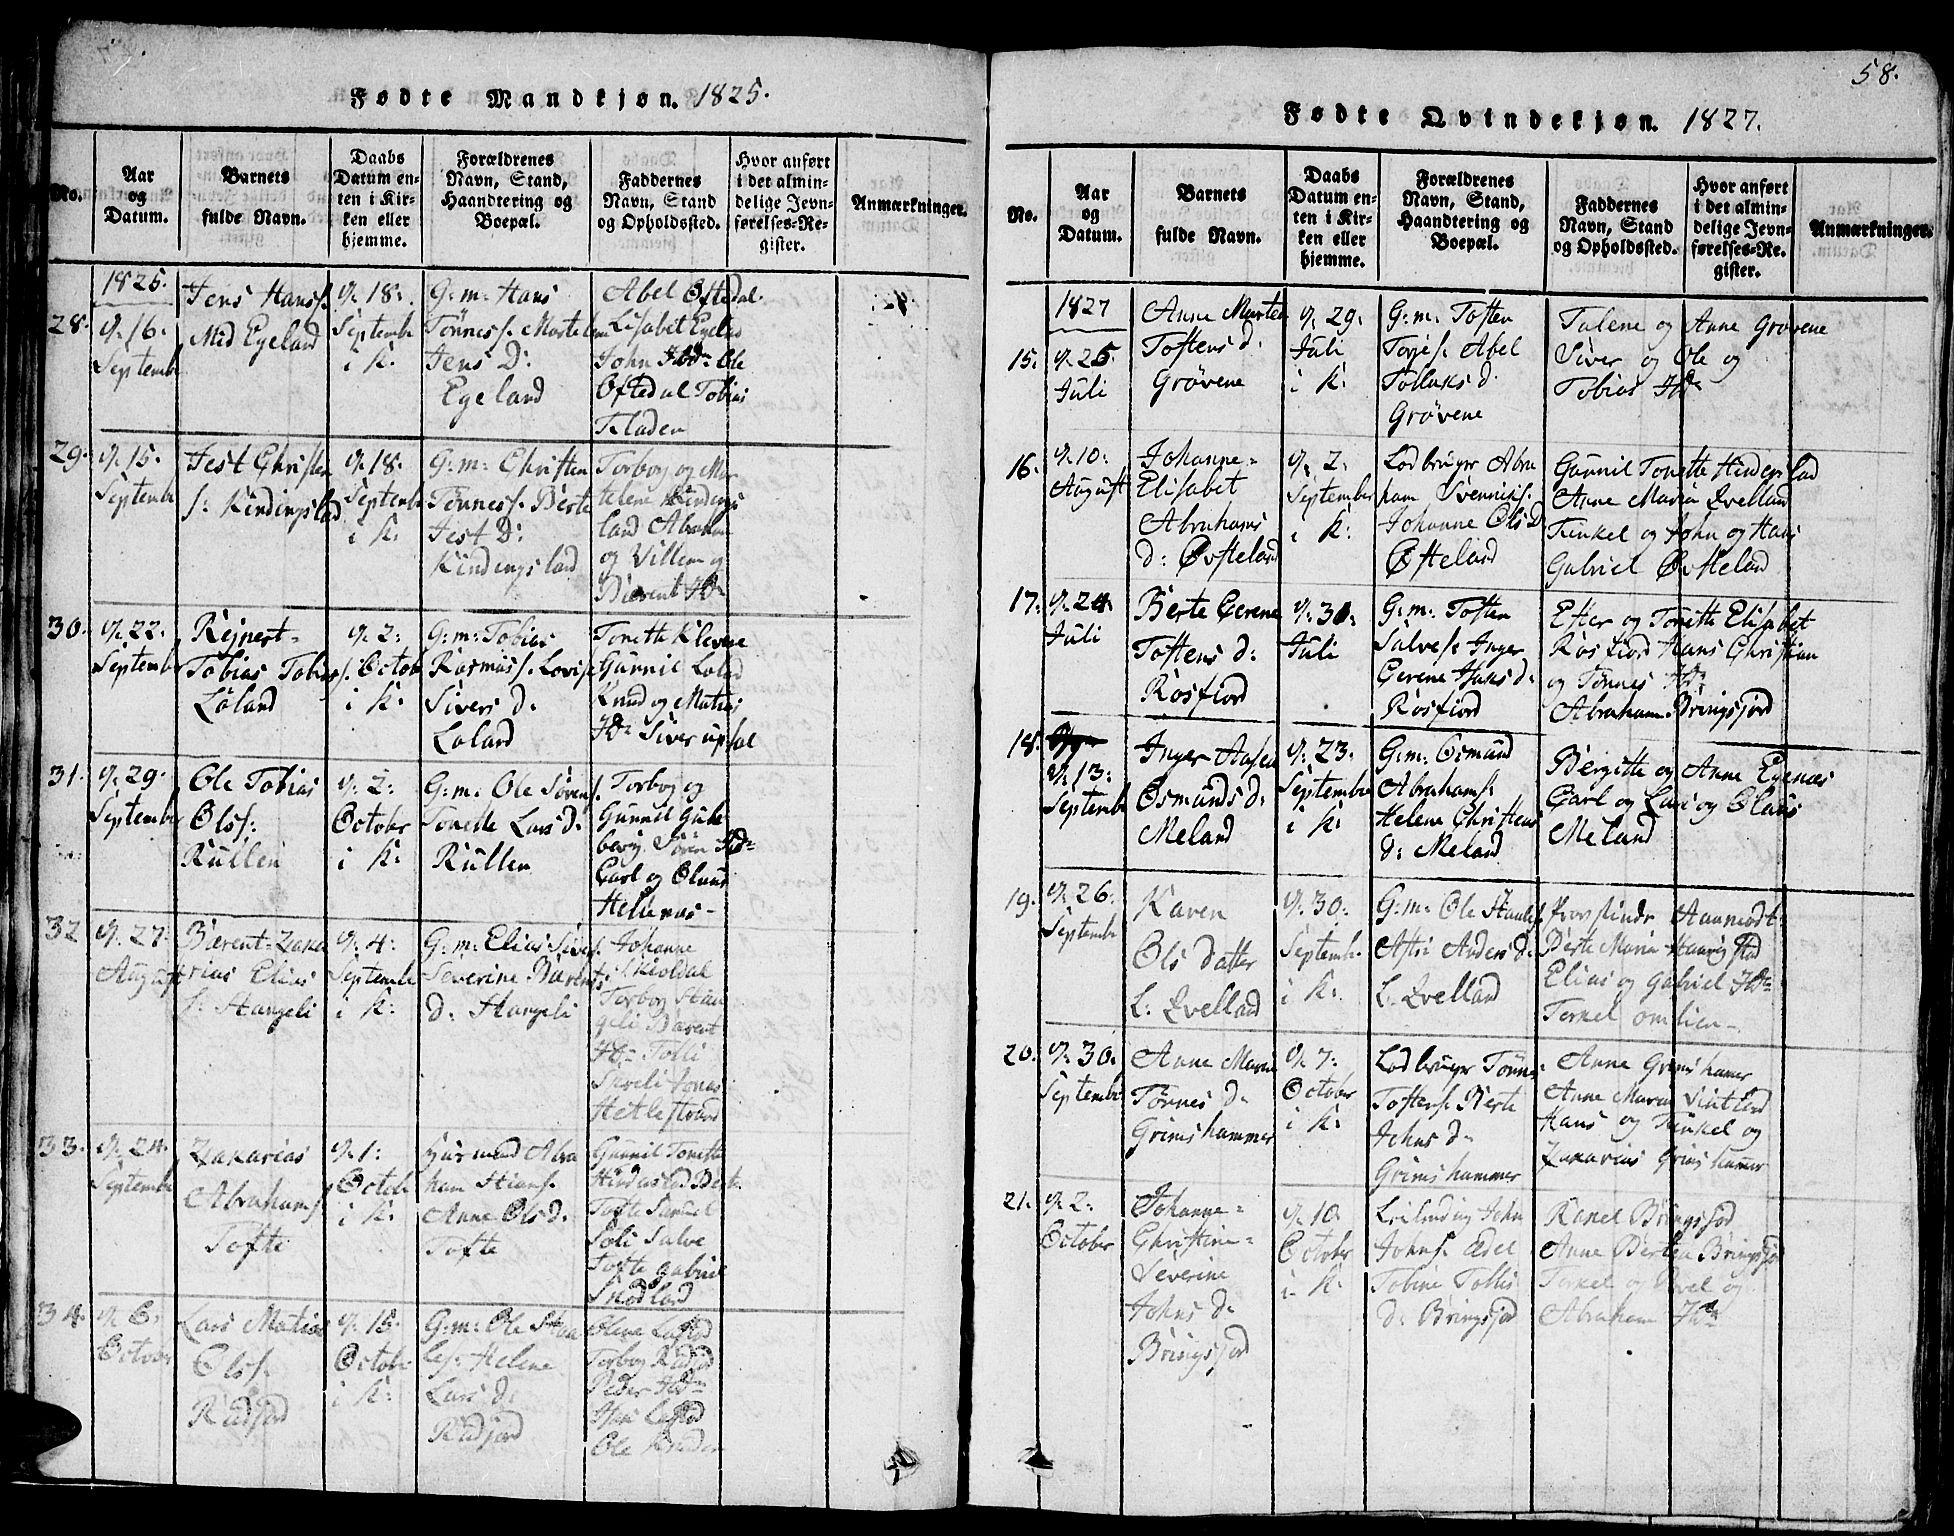 Fødte Mandkjøn. 1825.
No.
Aar
og
Datum.
Barnets
fulde Navn.
Daabs
Datum en-
ten i Kir-
ken eller
hjemme.
Forældrenes
Navn, Stand,
Haandtering og
Boepæl.
Faddernes
Navn, Stand
og Opholdssted.
Hvor anført
i det almin-
delige Jevn-
førelses-Re-
gister.
Anmærkninger.
1825.
28.
16.
Septembr
Jens Hanss.
Med Egeland
18.
Septembr
i K:
G: m: Hans
Tønness. Marte
Jens D:
Egeland
Abel Oftedal
Lisabet Egeland
John Ibd. Ole
Oftedal Tobias
Fladen
29.
15.
Septembr
Jest Christen
s: Kindingslad
18.
Septembr
i K:
G: m: Christen
Tønness. Berte
Jest D:
Kindingsland
Torbog og Mar
telene Kindings
land Abraham
og Villem og
Bærent Ibd
30.
22.
Septembr
Rejnert-
Tobias Tobias
s.
Loland
2:
October
i K:
G: m: Tobias
Rasmus s. Lovise
Sivers d:
Loland
Tonette Klevene
Gunnil Loland
Knud og Matias
Ibd Siver
31.
29.
September
Ole Tobias
Ols s:
Kullen
2:
October
i K:
G: m: Ole Sørens.
Tonette Lars d:
Kullen
Torbog og
Gunnil Gule
berg Søren Ibd
Carl og Oluus
Helnæs-
32
27.
August
Bærent-Zaka
rias Elias
s: Haugeli
4:
Septembr
i K:
G: m: Elias Sivers.
Severine Bærents
d: Haugeli
Johanne
Skioldal
Torbog Hau
geli Bærent
Ibd Tolli
Jonas
33.
24.
Septembr
Zakarias
Abrahams
Tofte
1:
October
i K:
Huusmand Abra
ham
Anne Ols d.
Tofte
Gunnil Tonette
Tofte
Salve
Tofte Gabriel
Skodland
34.
6.
October
Lars Matias
Ols s.
Rødfjord
15.
October
i K:
G: m: Ole Staa
les: Helene
Lars d:
Rødfjord
Torbog
Peder Ibd
Ole
58.
Fødte Qvindekjøn. 1827.
No.
Aar
og
Datum.
Barnets
fulde Navn.
Daabs
Datum en-
ten i Kir-
ken eller
hjemme.
Forældrenes
Navn, Stand,
Haandtering og
Boepæl.
Faddernes
Navn, Stand
og Opholdssted.
Hvor anført
i det almin-
delige Jevn-
førelses-Re-
gister.
Anmærkninger.
1827
15.
25.
Juli
Anne Marten
Tostens d:
Grøvene
29.
Juli
i K:
G: m: Tosten
Torjes. Abel
Tollaks d.
Grøvene
Talene og Anne Grøvene
Siver og Ole og
Tobias Ibd
16.
10.
August
Johanne-
Elisabet
Abrahams
d: Øvsteland
2:
September
i K:
Lodbruger Abra
ham Svennis s.
Johanne Ols D
Østeland
Gunnil Tonette Hindersland
Anne Maria Qvelland
Tønkel og John og Hans
Gabriel Øvsteland
17.
24.
Juli
Berte Gerene
Tostens d:
Rosfiord
30.
Juli
G: m: Tosten
Salves. Inger
Gerene Jaks d:
Rosfiord
Ester og Tonette Elisabet
Rosfiord Hans Christian
og Tønnes Ibd
Abraham Bringsjord
18.
13.
Septembr
Inger Aasen
Osmunds d:
Meland
23.
September
i K:
G: m: Osmund
Abrahams.
Helene Christens
d: Meland
Bergitte og Anne Egenæs
Carl og Lars og Olaus
Meland
19.
26.
Septembr
Karen
Ols datter
L: Qvelland
30.
Septembr
i K.
G: m: Ole Staales
Astri Anders d:
L. Qvelland
Provstinde Aanmodt
Berte Maria Haavigstad
Elias og Gabriel Ibd
Terkel omlien-
20.
30.
Septembr
Anne Marie
Tønnes d-
Grimshammer
7:
October
i K:
Lodbruger Tønnes
Tostens. Berte
Johns d-
Grimshammer
Anne Grimshamer
Anne Maria
Hans og Tønkel og
Zakarias Grimshamer
21.
2.
October
Johanne-
Christine-
Severine
Johns d-
Bringsjord
10.
October
i K:
Leilending John
Johns.
Tobine Tollis
d: Bringsjord
Ranel Bringsjord
Anne Bertea Bringsjor
Terkel og Axel og
Abraham Ibd